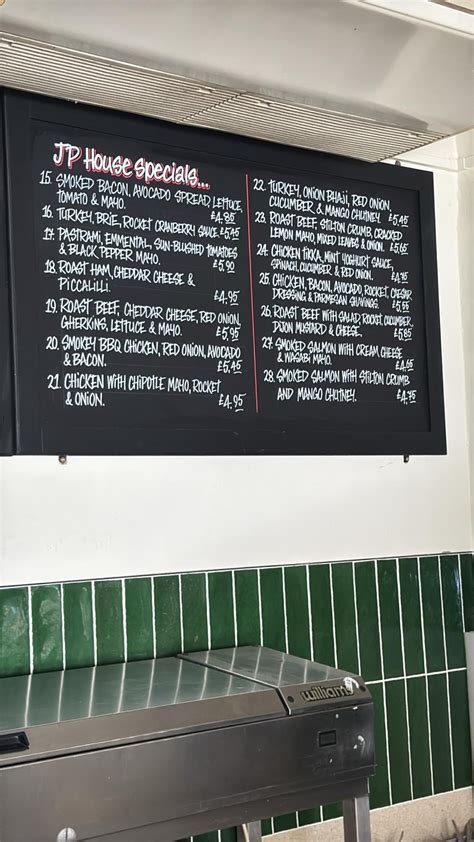 JP House Specials...
15. SMOKED BACON, AVOCADO SPREAD, LETTUCE,
TOMATO & MAYO. £4.85
16. TURKEY, BRIE, ROCKET CRANBERRY SAUCE £5.45
17. PASTRAMI, EMMENTAL, SUN-BLUSHED TOMATOES
& BLACK PEPPER MAYO. £5.90
18. ROAST HAM, CHEDDAR CHEESE &
PICCALILLI. £4.95
19. ROAST BEEF, CHEDDAR CHEESE, RED ONION,
GHERKINS, LETTUCE & MAYO. £5.95
20. SMOKEY BBQ CHICKEN, RED ONION, AVOCADO
& BACON. £5.45
21. CHICKEN WITH CHIPOTLE MAYO, ROCKET
& ONION. £4.95
22. TURKEY, ONION BHAJI, RED ONION,
CUCUMBER, & MANGO CHUTNEY. £5.45
23. ROAST BEEF, STILTON CRUMB, CRACKED
LEMON MAYO, MIXED LEAVES & ONION. £5.65
24. CHICKEN TIKKA, MINT YOGHURT SAUCE,
SPINACH, CUCUMBER & RED ONION.
25. CHICKEN, BACON, AVOCADO, ROCKET, CAESAR
DRESSING & PARMESAN SHAVINGS.
26. ROAST BEEF WITH SALAD, ROCKET, CUCUMBER,
DIJON MUSTARD & CHEESE. £5.85
27. SMOKED SALMON WITH CREAM CHEESE
& WASABI MAYO.
28. SMOKED SALMON WITH STILTON CRUMB
AND MANGO CHUTNEY. £4.75
williams